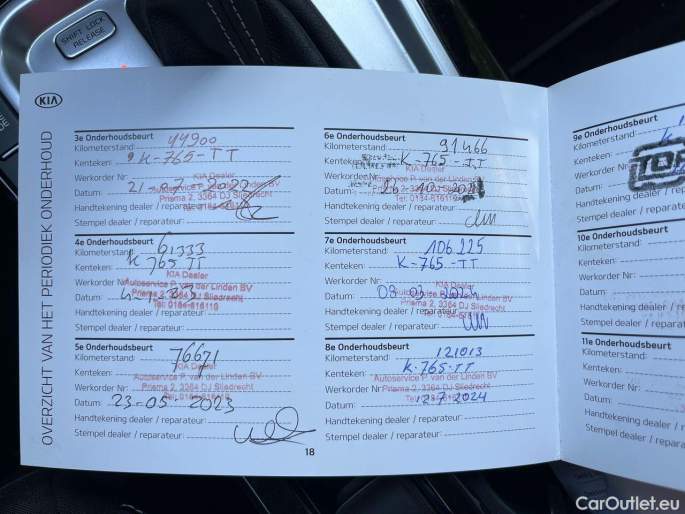 SHIFT LOCK
RELEASE
KIA
OVERZICHT VAN HET PERIODIEK ONDERHOUD
3e Onderhoudsbeurt
Kilometerstand: 44900
Kenteken: K-765-TT
Werkorder Nr:
KIA Dealer
Autoservice P. van der Linden BV
Datum:
Prisma 2, 3364 DJ Sliedrecht
Tel: 0184-616119
Handtekening dealer / reparateur:
Stempel dealer / reparateur:
4e Onderhoudsbeurt
Kilometerstand: 61333
Kenteken: K 765 TT
Werkorder Nr:
KIA Dealer
Autoservice P. van der Linden BV
Datum:
Prisma 2, 3364 DJ Sliedrecht
Tel: 0184-616119
Handtekening dealer / reparateur:
Stempel dealer / reparateur:
5e Onderhoudsbeurt
Kilometerstand: 76671
Kenteken:
KIA Dealer
Werkorder Nr:
Autoservice P. van der Linden BV
Prisma 2, 3364 DJ Sliedrecht
Tel: 0184-616119
Datum: 23-05-2023
Handtekening dealer / reparateur:
Stempel dealer / reparateur:
6e Onderhoudsbeurt
Kilometerstand: 91466
Kenteken: K-765-TT
Werkorder
KIA Dealer
Autoservice P. van der Linden BV
Datum: 26 10
Prisma 2, 3364 DJ Sliedrecht
Tel: 0184-616119
Handtekening dealer / reparateur:
Stempel dealer / reparateur:
7e Onderhoudsbeurt
Kilometerstand: 106225
Kenteken: K-765-TT
Werkorder Nr:
KIA Dealer
Autoservice P. van der Linden BV
Datum: 08 03 2024
Prisma 2, 3364 DJ Sliedrecht
Tel: 0184-616119
Handtekening dealer / reparateur:
Stempel dealer / reparateur:
8e Onderhoudsbeurt
Kilometerstand: 121013
Kenteken: K-765-TT
KIA Dealer
Werkorder Nr:
Autoservice P. van der Linden BV
Prisma 2, 3364 DJ Sliedrecht
Tel: 0184-616119
Datum: 12 7 2024
Handtekening dealer / reparateur:
Stempel dealer / reparateur:
18
9e Onderhoudsbeurt
Kilometerstand:
Kenteken:
Werkorder
Datum:
Handtekening
Stempel dealer
10e Onderhoudsbeurt
Kilometerstand:
Kenteken:
Werkorder Nr:
Datum:
Handtekening dealer
Stempel dealer / re
11e Onderhoudsbeurt
Kilometerstand:
Kenteken:
Werkorder Nr:
Datum:
Handtekening dealer
Stempel dealer / repara
CarOutlet.eu